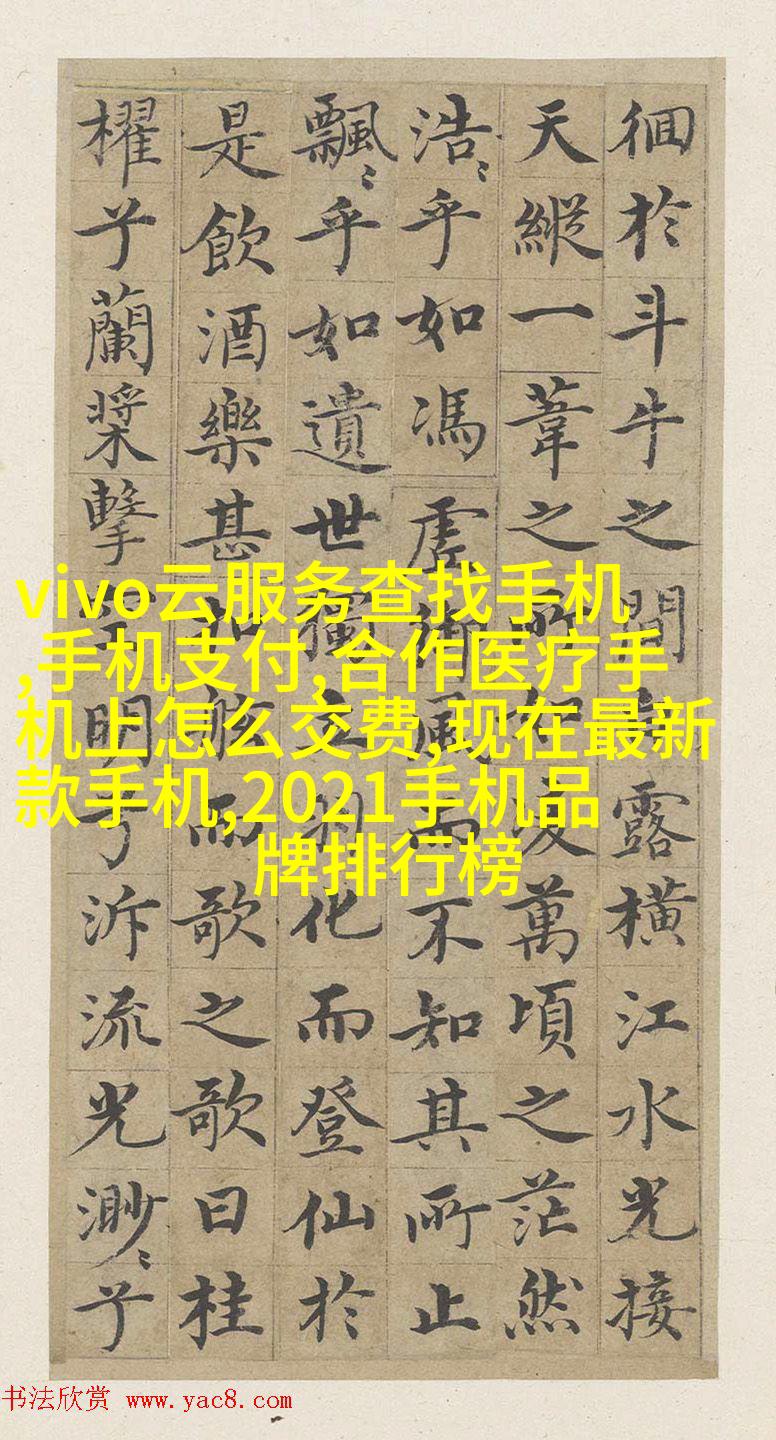 徊於斗牛之間露橫江水光接
天縱一葦之所如凌萬頃之茫然
浩〻乎如馮虛御風而不知其所止
飄〻乎如遺世獨立羽化而登仙於
是飲酒樂甚扣舷而歌之歌曰桂
櫂兮蘭槳擊明兮泝流光渺〻兮
vivo云服务查找手机
,手机支付,合作医疗手
机上怎么交费,现在最新
款手机,2021手机品
牌排行榜
书法欣赏 www.yac8.com